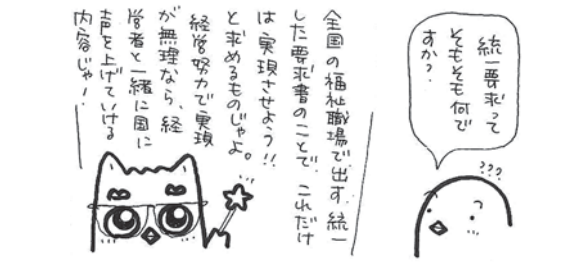 統一要求って
そもそも何で
すか?
???
全国の福祉職場で出す統一
した要求書のことで、これだけ
は実現させよう!!
と求めるものじゃよ。
経営努力で実現
が無理なら、経
営者と一緒に国に
声を上げていける
内容じゃ!